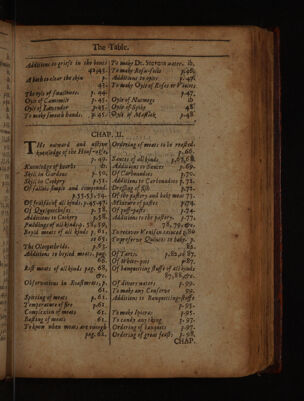 The Table.
Additions to griefs in the bones
42,43.
A bath to clear the skin p.
43.
The oyl of swallows. p. 44.
Oyle of Cammomil p. 45.
Oyle of Lavender p. 45.
To make smooth hands. p. 45.
To make Dr. Stevens water. ib.
To make Rosa-solis p. 46.
Additions to oyles p. 47.
To make Oyle of Roses or Violets
p. 47.
Oyle of Nutmegs ib
Oyle of Spike 48
Oyle of Mastick p. 48
CHAP. II.
THe outward and active
knowledge of the House-wife,
p. 49.
Knowledge of hearbs
Skil in Gardens p. 50.
Skil in Cookery p. 51.
Of sallats simple and compound.
p. 53,
Of Quelquechoses p. 58
Additions to Cookery p. 58.
Puddings of all kinds p. 58, 59,
Boyld meats of all kinds p. 61.
The Oleopotrido. p. 65.
Additions to boyled meats. pag.
66.
Rost meats of all kinds pag. 68,
&c.
Observations in Roastmeats, p.
Spitting of meats p. 61.
Temperature of fire p. 61
Complexion of meats 61.
Basting of meats 61.
To know when meats are enough
pag. 62.
Ordering of meats to be rosted.
p. 66.
Sauces of all kinds p. 67, 68,
Additions to Sauces p. 69.
Of Carbonadoes p. 70.
Additions to Carbonadoes p. 71.
Dressing of fish p. 71.
Of the pastery and bakt meat 71.
Mixture of pastes p. 74.
Of puff-paste p. 74.
Additions to the pastery. p. 77,
78, 79, &c.
To recover Venison tainted p. 80
To preserve Quinces to bake p.
81.
Of Tarts. p. 82, &c. 87.
Of White-pot p. 87.
Of banquetting stuffe of all kinds
87, 88, &c.
Of divers waters p.
To make any Conserve 90.
Additions to Banqueting-stuffe
p. 93.
To make Ipocras p. 95.
To candy any thing p. 97.
Ordering of banquets p. 97.
Ordering of great feasts p. 98.
CHAP.